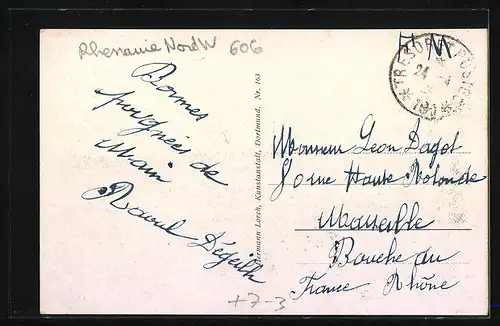 Rhenanie NordW 606
F M
TRESOR ET POSTES
24 - 4
* 195 *
Bonnes
poignées de
Main
Raoul Dégeilh
Hermann Lorch, Kunstanstalt, Dortmund. Nr. 163
Monsieur Leon Daget
Haute Rotonde
Marseille
Bouche du
France Rhône
+7-3